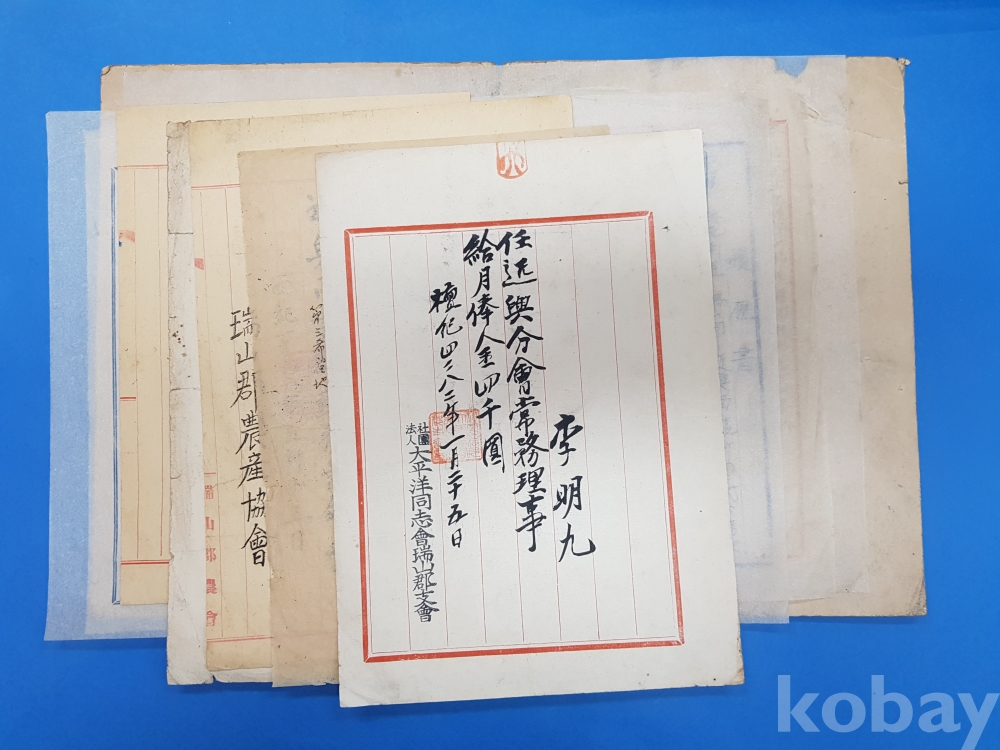 李明九
任近興分會常務理事
給月俸金四千圓
檀紀四二八二年一月二十五日
社團法人太平洋同志會瑞山郡支會
第三
瑞山郡農産協會
瑞山郡農會
kobay